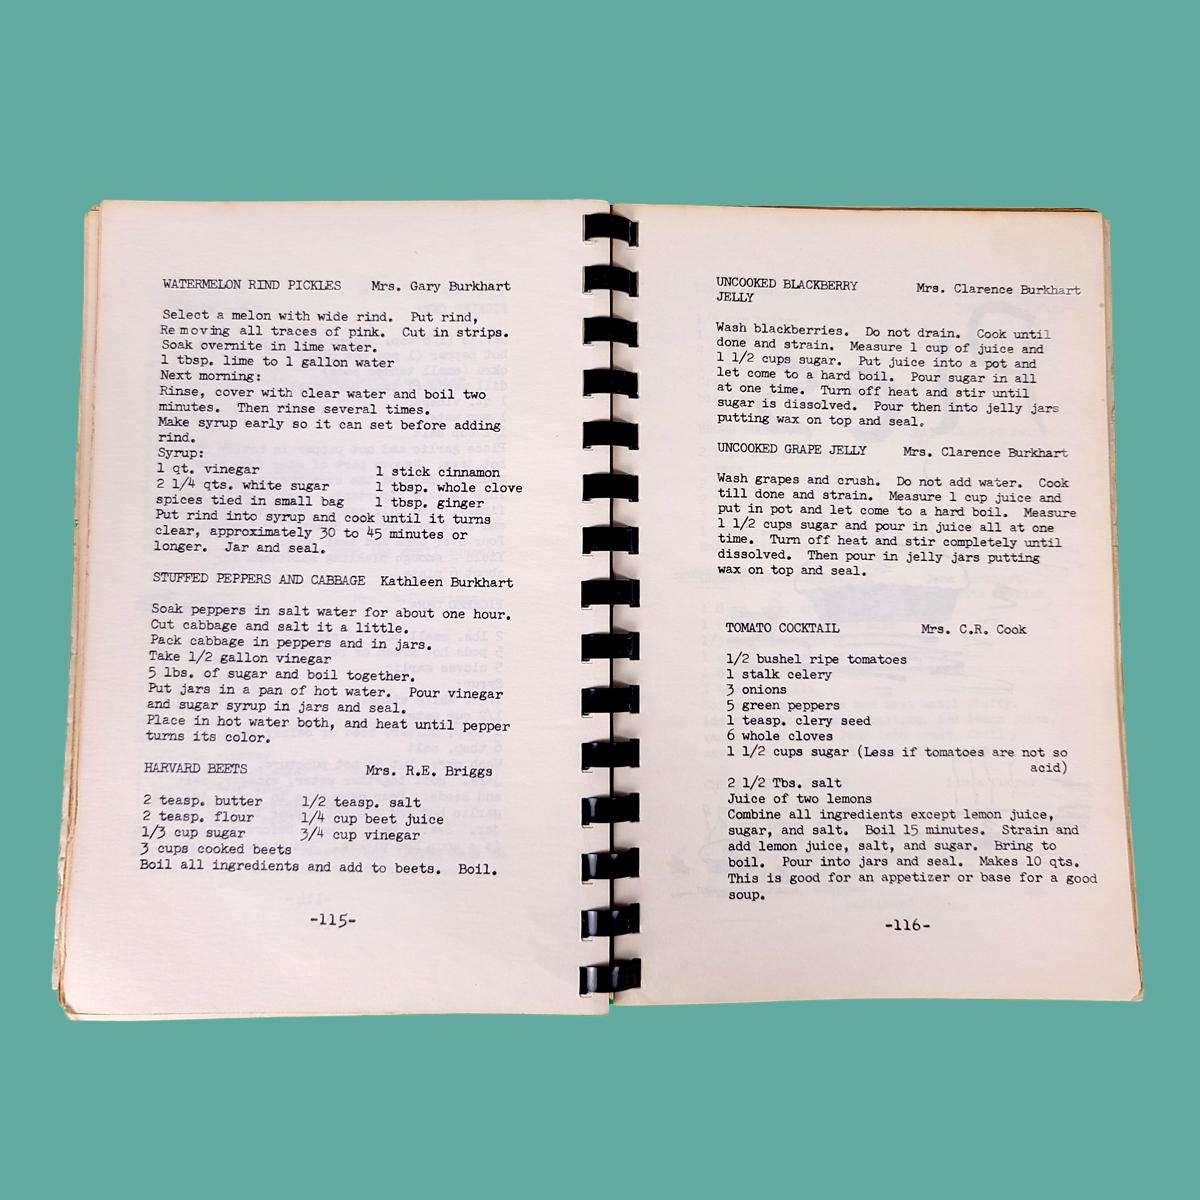 WATERMELON RIND PICKLES Mrs. Gary Burkhart
Select a melon with wide rind. Put rind,
Removing all traces of pink. Cut in strips.
Soak overnite in lime water.
1 tbsp. lime to 1 gallon water
Next morning:
Rinse, cover with clear water and boil two
minutes. Then rinse several times.
Make syrup early so it can set before adding
rind.
Syrup:
1 qt. vinegar 1 stick cinnamon
2 1/4 qts. white sugar 1 tbsp. whole clove
spices tied in small bag 1 tbsp. ginger
Put rind into syrup and cook until it turns
clear, approximately 30 to 45 minutes or
longer. Jar and seal.
STUFFED PEPPERS AND CABBAGE Kathleen Burkhart
Soak peppers in salt water for about one hour.
Cut cabbage and salt it a little.
Pack cabbage in peppers and in jars.
Take 1/2 gallon vinegar
5 lbs. of sugar and boil together.
Put jars in a pan of hot water. Pour vinegar
and sugar syrup in jars and seal.
Place in hot water both, and heat until pepper
turns its color.
HARVARD BEETS Mrs. R.E. Briggs
2 teasp. butter 1/2 teasp. salt
2 teasp. flour 1/4 cup beet juice
1/3 cup sugar 3/4 cup vinegar
3 cups cooked beets
Boil all ingredients and add to beets. Boil.
-115-
UNCOOKED BLACKBERRY Mrs. Clarence Burkhart
JELLY
Wash blackberries. Do not drain. Cook until
done and strain. Measure 1 cup of juice and
1 1/2 cups sugar. Put juice into a pot and
let come to a hard boil. Pour sugar in all
at one time. Turn off heat and stir until
sugar is dissolved. Pour then into jelly jars
putting wax on top and seal.
UNCOOKED GRAPE JELLY Mrs. Clarence Burkhart
Wash grapes and crush. Do not add water. Cook
till done and strain. Measure 1 cup juice and
put in pot and let come to a hard boil. Measure
1 1/2 cups sugar and pour in juice all at one
time. Turn off heat and stir completely until
dissolved. Then pour in jelly jars putting
wax on top and seal.
TOMATO COCKTAIL Mrs. C.R. Cook
1/2 bushel ripe tomatoes
1 stalk celery
3 onions
5 green peppers
1 teasp. clery seed
6 whole cloves
1 1/2 cups sugar (Less if tomatoes are not so
acid)
2 1/2 Tbs. salt
Juice of two lemons
Combine all ingredients except lemon juice,
sugar, and salt. Boil 15 minutes. Strain and
add lemon juice, salt, and sugar. Bring to
boil. Pour into jars and seal. Makes 10 qts.
This is good for an appetizer or base for a good
soup.
-116-